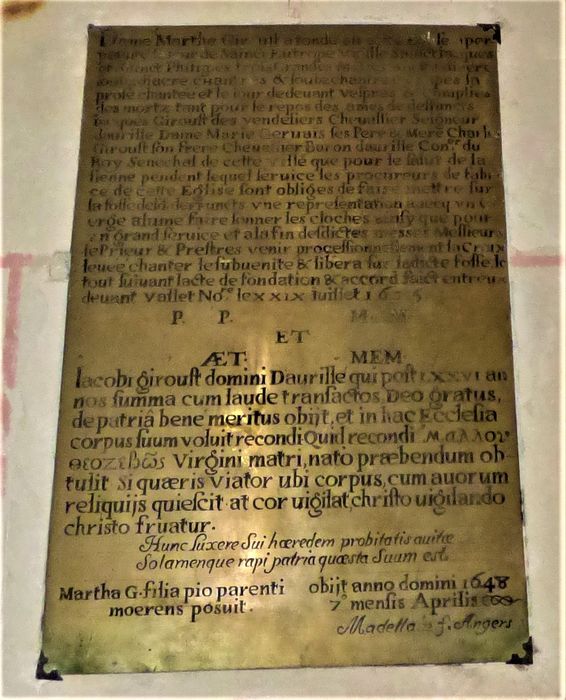 Dame Marthe
prose chantee et le iour de deuant Vespres & Complies
des mortz tant pour le repos des ames de deffuncts
Iacques Giroust des vendeliers Cheuallier Seigneur
daurille Dame Marie Geruais ses Pere & Mere Charle
Giroust son frere Cheuallier Baron daurille Con.er du
Roy Senechal de cette Ville que pour le salut de la
sienne pendent lequel seruice les procureurs de fabri
ce de cette Eglise sont obliges de faire mettre sur
la fosse deffuncts vne representation auecq vn C
erge alume faire sonner les cloches ainsy que pour
vn grand seruice et a la fin desdictes messes Messieurs
le Prieur & Prestres venir processionnellement la Croix
leuee chanter le subuenite & libera sur ladicte fosse, le
tout suiuant lacte de fondation & accord faict entreux
deuant Vallet No.re le XXIX iuillet
P. P. M. M.
ET
ÆT. MEM
Iacobi giroust domini Daurille qui post LXXVI an
nos summa cum laude transactos, Deo gratus,
de patriâ bene meritus obijt, et in hac Ecclesia
corpus suum voluit recondi Quid recondi μαλλον
θεοζεβῶς Virgini matri, nato præbendum ob
tulit Si quæris Viator ubi corpus, cum auorum
reliquijs quiescit at cor uigilat, christo uigilando
christo fruatur.
Hunc luxere Sui hæredem probitatis auitæ
Solamenque rapi patria quæsta Suum est
Martha G. filia pio parenti obijt anno domini 1648
moerens posuit. 7° mensis Aprilis
f. Angers